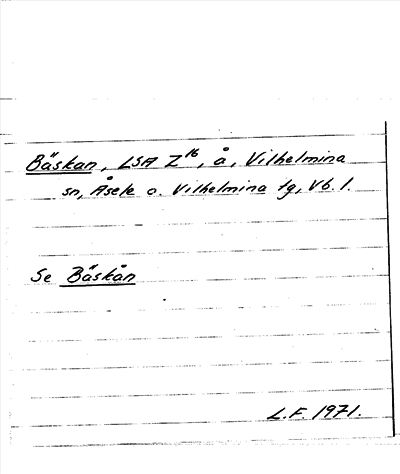 Bäskan, LSA Z¹⁶, å, Vilhelmina
sn, Åsele o. Vilhelmina tg, Vb. l.
Se Bäskån
L.F. 1971.